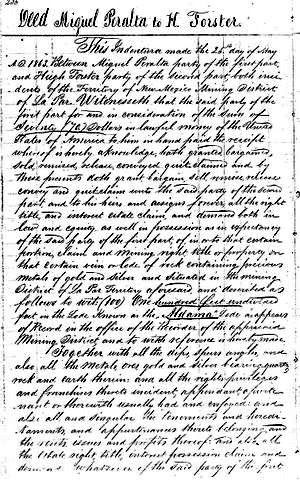 Deed Miguel Peralta to H. Forster.
This Indenture made the 26th day of May
A.D. 1863 Between Miguel Peralta party of the first part
and Hugh Forster party of the Second part, both resi
dents of the Territory of New Mexico Mining District
of La Paz Witnesseth that the said party of the
first part for and in consideration of the Sum of
Seventy (70) Dollars in lawful money of the United
States of America to him in hand paid the receipt
whereof is hereby acknowledge hath granted bargained,
sold, remised, release, conveyed, quitclaimed and by
these presents doth grant bargain sell, remise release
convey and quitclaim unto the said party of the second
part and to his heirs and assigns forever all the right
title, and interest estate claim, and demand both in
law and equity as well in possession as in expectancy
of the said party of the first part, of in or to that certain
portion, claim and mining right title or property on
that certain vein or lode of rock containing precious
metals of gold and silver and situated in the mining
District of La Paz Territory aforesaid and described as
follows to wit, (100) One hundred feet undivided
feet in the Lode Known as the "Aldama" Lode as appears
of Record in the office of the Recorder of the aforesaid
Mining District and to with reference is hereby made.
Together with all the dips, spurs angles, and
also all the metals, ores gold and Silver bearing quartz
rock and earth therein; and all the rights privileges
and franchises thereto incident appendant appurte
nant or therewith usually had and enjoyed: and
also: all and Singular the tenements and heredi-
taments, and appurtenances thereto belonging and
the rents, issues and profits thereof: and also all
the Estate right title, interest possession claim and
demand whatsoever of the Said party of the first